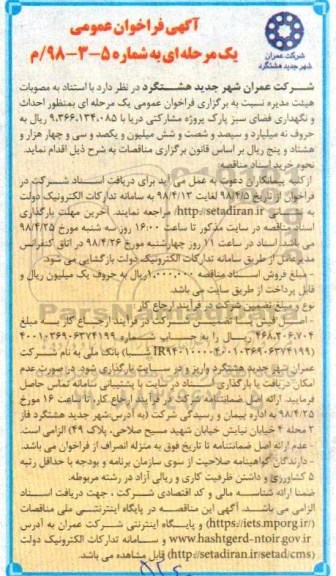 شرکت عمران
شهر جدید هشتگرد
آگهی فراخوان عمومی
یک مرحله ای به شماره ۵-۳-۹۸/م
شرکت عمران شهر جدید هشتگرد در نظر دارد با استناد به مصوبات
هیئت مدیره نسبت به برگزاری فراخوان عمومی یک مرحله ای بمنظور احداث
و نگهداری فضای سبز پارک پروژه مشارکتی دریا با ۹،۳۶۶،۱۳۴،۰۸۵ ریال به
حروف نه میلیارد و سیصد و شصت و شش میلیون و یکصد و سی و چهار هزار و
هشتاد و پنج ریال بر اساس قانون برگزاری مناقصات به شرح ذیل اقدام نمایند.
نحوه خرید اسناد مناقصه:
از کلیه پیمانکاران دعوت به عمل می آید برای دریافت اسناد شرکت در
فراخوان از تاریخ ۹۸/۴/۵ لغایت ۹۸/۴/۱۳ به سامانه تدارکات الکترونیک دولت
به نشانی http://setadiran.ir مراجعه نمایند. آخرین مهلت بارگذاری
اسناد مناقصه در سایت مذکور تا ساعت ۱۶:۰۰ روز سه شنبه مورخ ۹۸/۴/۲۵
می باشد. اسناد در ساعت ۱۱ روز چهارشنبه مورخ ۹۸/۴/۲۶ در اتاق کنفرانس
مدیرعامل از طریق سامانه تدارکات الکترونیک دولت بازگشایی می شود.
- مبلغ فروش اسناد مناقصه ۱،۰۰۰،۰۰۰ریال به حروف یک میلیون ریال و
قابل پرداخت از طریق سایت می باشد.
نوع و مبلغ تضمین شرکت در فرآیند ارجاع کار
- اصل فیش یا تضمین شرکت در فرآیند ارجاع کار به مبلغ
۴۶۸،۳۰۶،۷۰۴ریال را به حساب شماره
بانک ملی به نام شرکت
عمران شهر جدید هشتگرد واریز و در سایت بارگذاری شود. در صورت عدم
امکان دریافت یا بارگذاری اسناد در سایت با پشتیبانی سامانه تماس حاصل
فرمایید. ارائه اصل ضمانتنامه شرکت در فرآیند ارجاع کار تا ساعت ۱۶ مورخ
۹۸/۴/۲۵ به اداره پیمان و رسیدگی شرکت (به آدرس شهر جدید هشتگرد فاز
۲ محله ۴ خیابان نیایش خیابان شهید مسیح صلاحی، پلاک ۴۹) الزامی است.
- عدم ارائه اصل ضمانتنامه تا تاریخ فوق به منزله انصراف از فراخوان می باشد.
- دارندگان گواهینامه صلاحیت از سوی سازمان برنامه و بودجه با حداقل رتبه
۵ کشاورزی و داشتن ظرفیت کاری و ریالی آزاد در رشته مربوطه.
ضمنا ارائه شناسه مالی و کد اقتصادی شرکت، جهت دریافت اسناد
الزامی می باشد. آگهی این مناقصه در پایگاه اینترنتی ملی مناقصات
(https://iets.mporg.ir/) و پایگاه اینترنتی شرکت عمران به آدرس
www.hashtgerd-ntoir.gov.ir و سامانه تدارکات الکترونیک دولت
(http://setadiran.ir/setad/cms) قابل مشاهده می باشد.
ParsNamadData